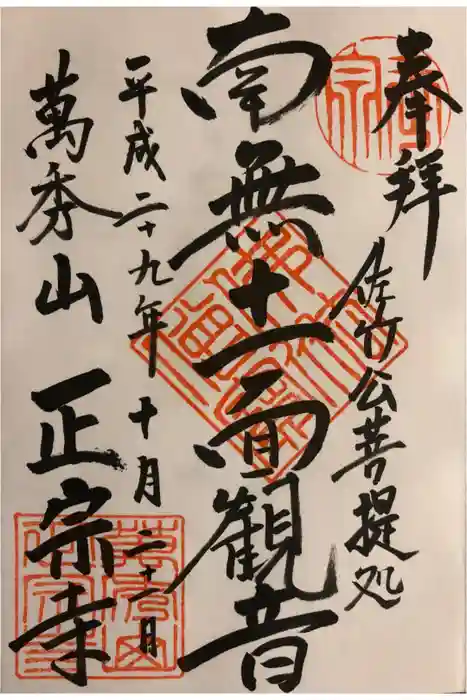 奉拝
佐竹公菩提処
南無十一面観音
平成二十九年十月二十二日
萬秀山
正宗寺